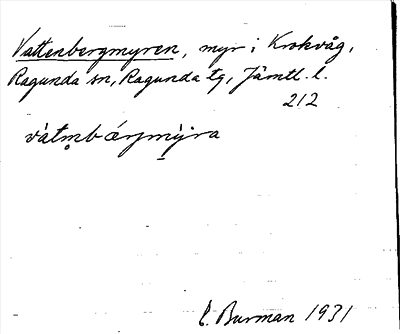 Vattenbergmyren, myr i Krokvåg,
Ragunda sn, Ragunda tg, Jämtl. l.
212
vátm̥bárjmỳra
C. Burman 1931